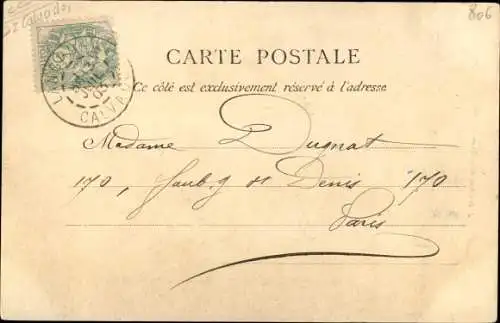 Calvados
806
CALVADOS
03
CARTE POSTALE
Ce côté est exclusivement réservé à l'adresse
Madame Dugnat
170, Faub.g St Denis 170
Paris